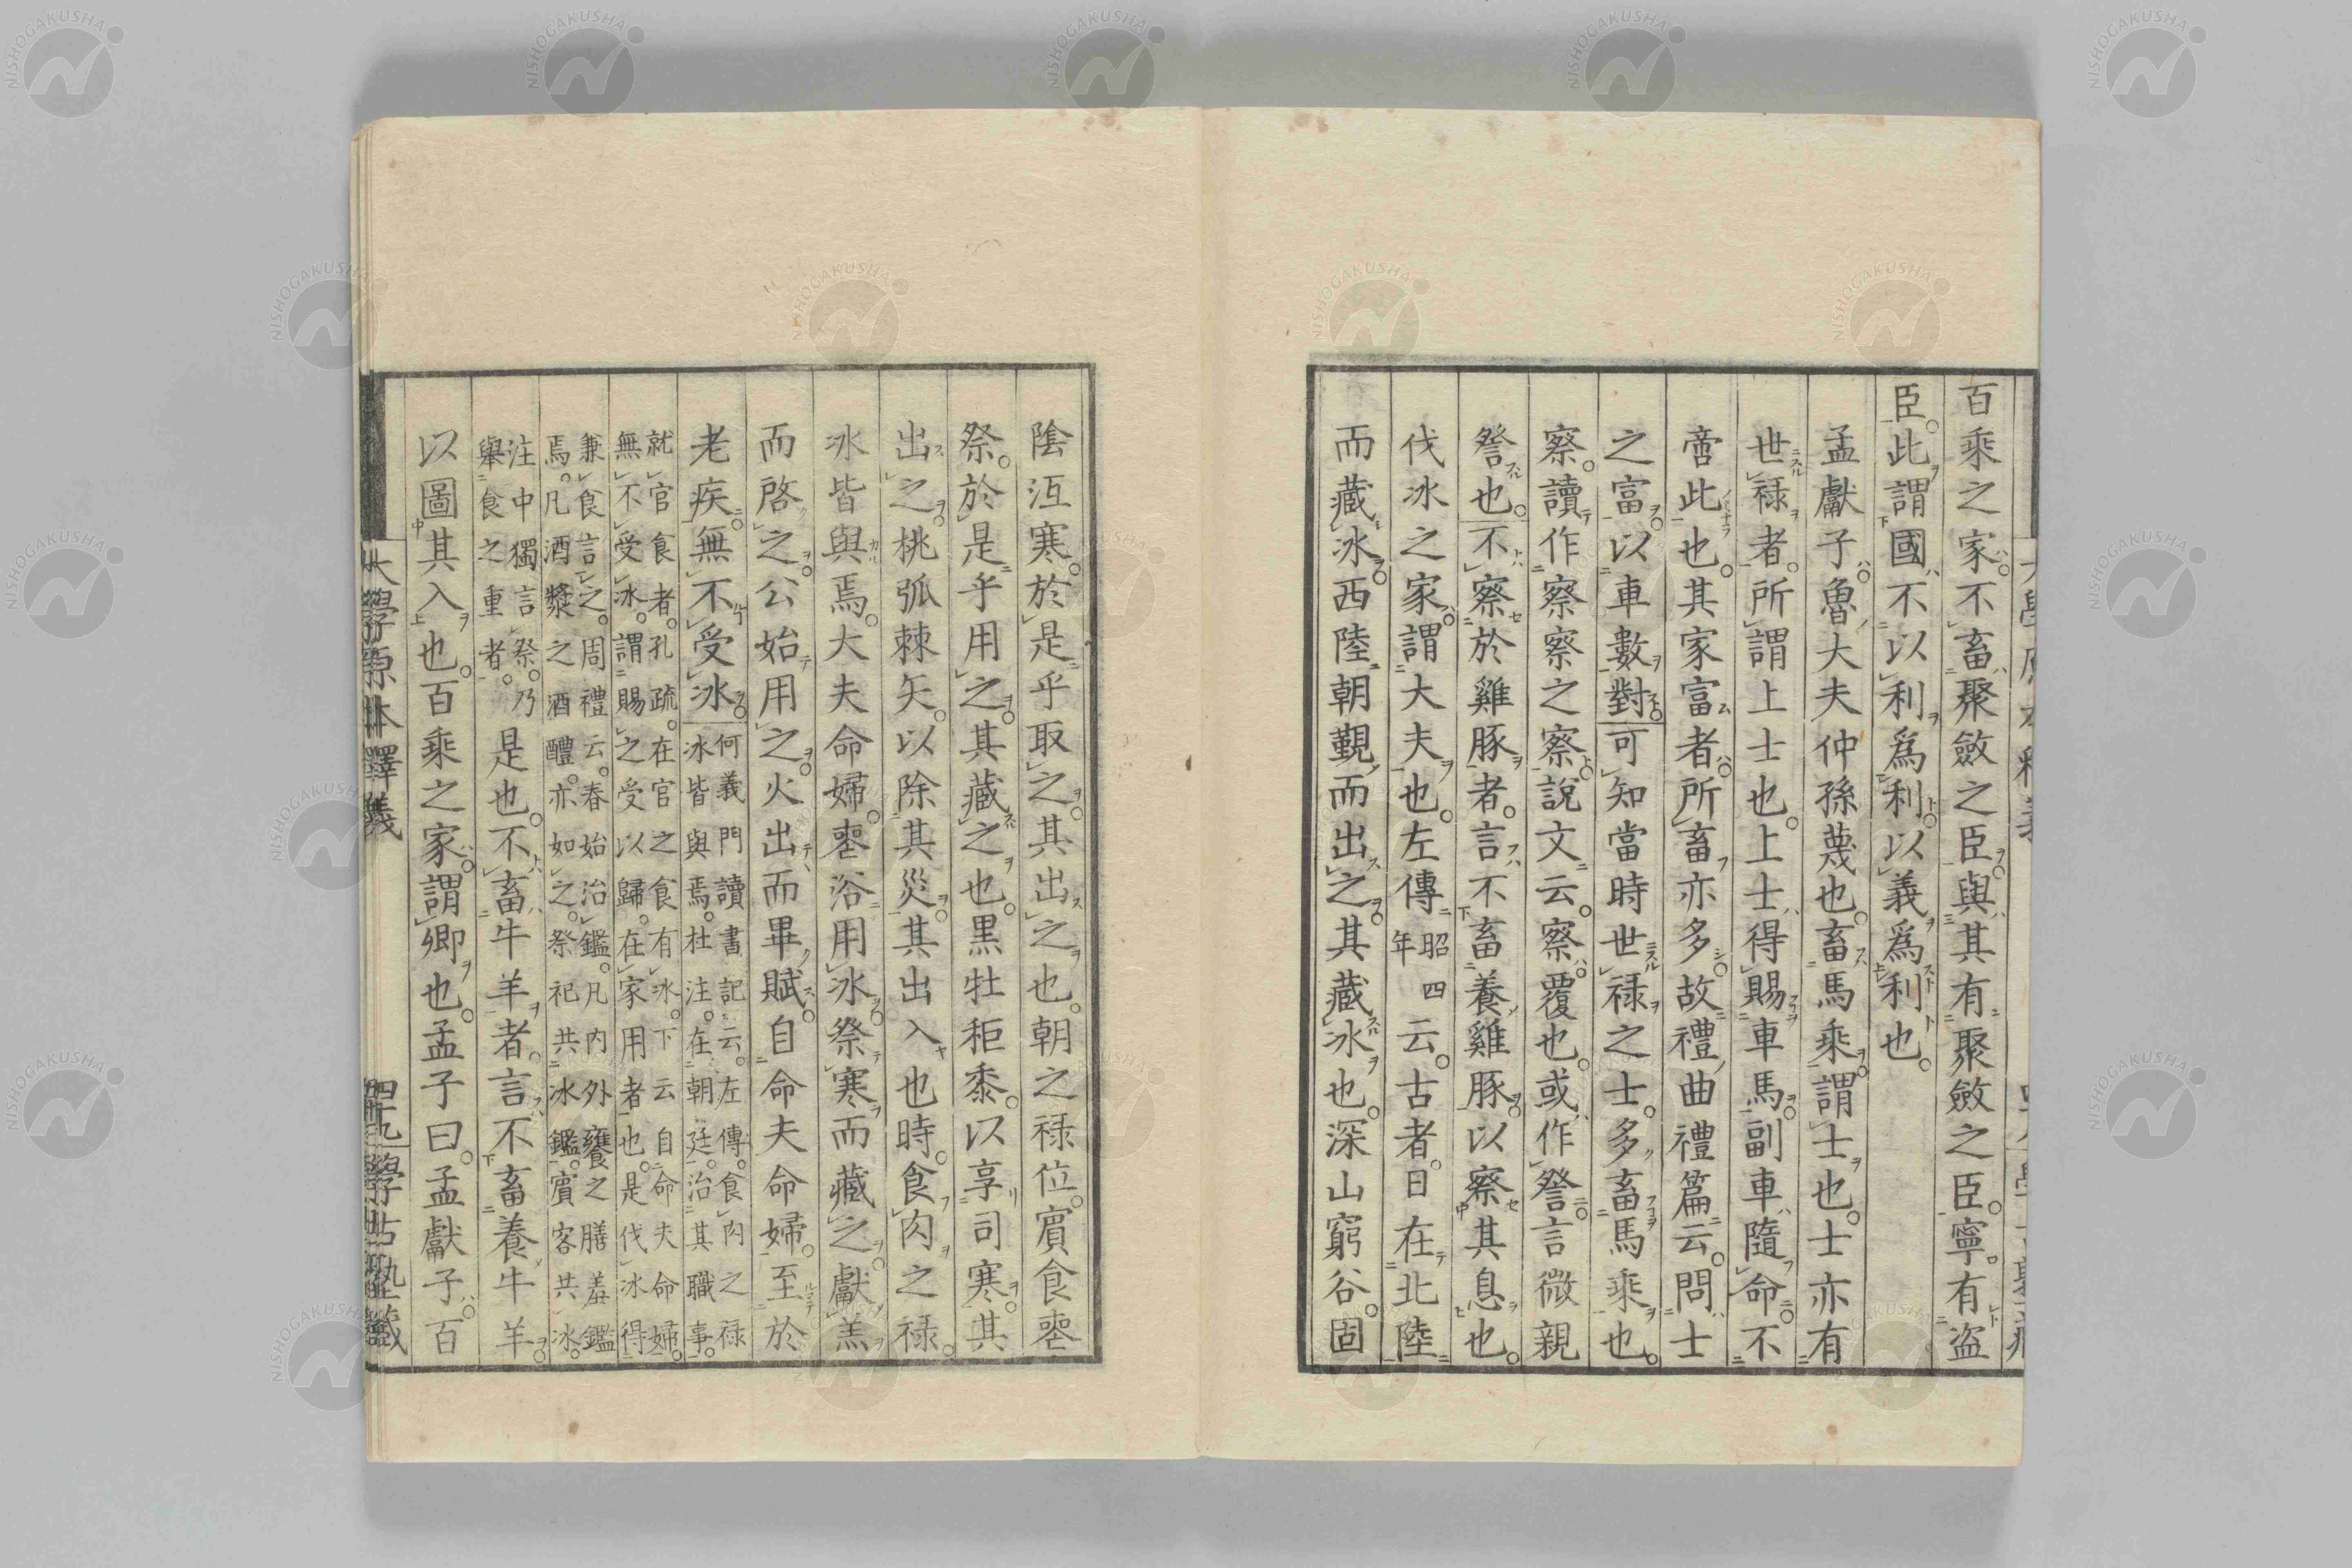 百乘之家。不畜聚斂之臣。與其有聚斂之臣。寧有盜
臣。此謂國不以利爲利。以義爲利也。
孟獻子。魯大夫仲孫蔑也。畜馬乘。謂士也。士亦有
世祿者。所謂上士也。上士得賜車馬。副車隨命。不
啻此也。其家富者。所畜亦多。故禮曲禮篇云。問士
之富。以車數對。可知當時世祿之士。多畜馬乘也。
察。讀作察察之察。說文云。察。覆也。或作詧。言微親
詧也。不察於雞豚者。言不畜養雞豚。以察其息也。
伐冰之家。謂大夫也。左傳昭四年云。古者。日在北陸
而藏冰。西陸朝覿而出之。其藏冰也。深山窮谷。固
陰沍寒。於是乎取之。其出之也。朝之祿位。賓食喪
祭。於是乎用之。其藏之也。黑牡秬黍。以享司寒。其
出之。桃弧棘矢。以除其災。其出入也時。食肉之祿。
冰皆與焉。大夫命婦。喪浴用冰。祭寒而藏之。獻羔
而啓之。公始用之。火出而畢賦。自命夫命婦。至於
老疾。無不受冰。何義門讀書記云。左傳。食肉之祿
冰皆與焉。杜注。在朝廷。治其職事。
就官食者。孔疏。在官之食有冰。下云自命夫命婦。
無不受冰。謂賜之受以歸。在家用者也。是伐冰得
兼食言之。周禮云。春始治鑑。凡內外饔之膳羞鑑
焉。凡酒漿之酒醴。亦如之。祭祀共冰鑑。賓客共冰。
注中獨言祭。乃
舉食之重者。是也。不畜牛羊者。言不畜養牛羊。
以圖其入也。百乘之家。謂卿也。孟子曰。孟獻子。百
大學原本釋義
四十九